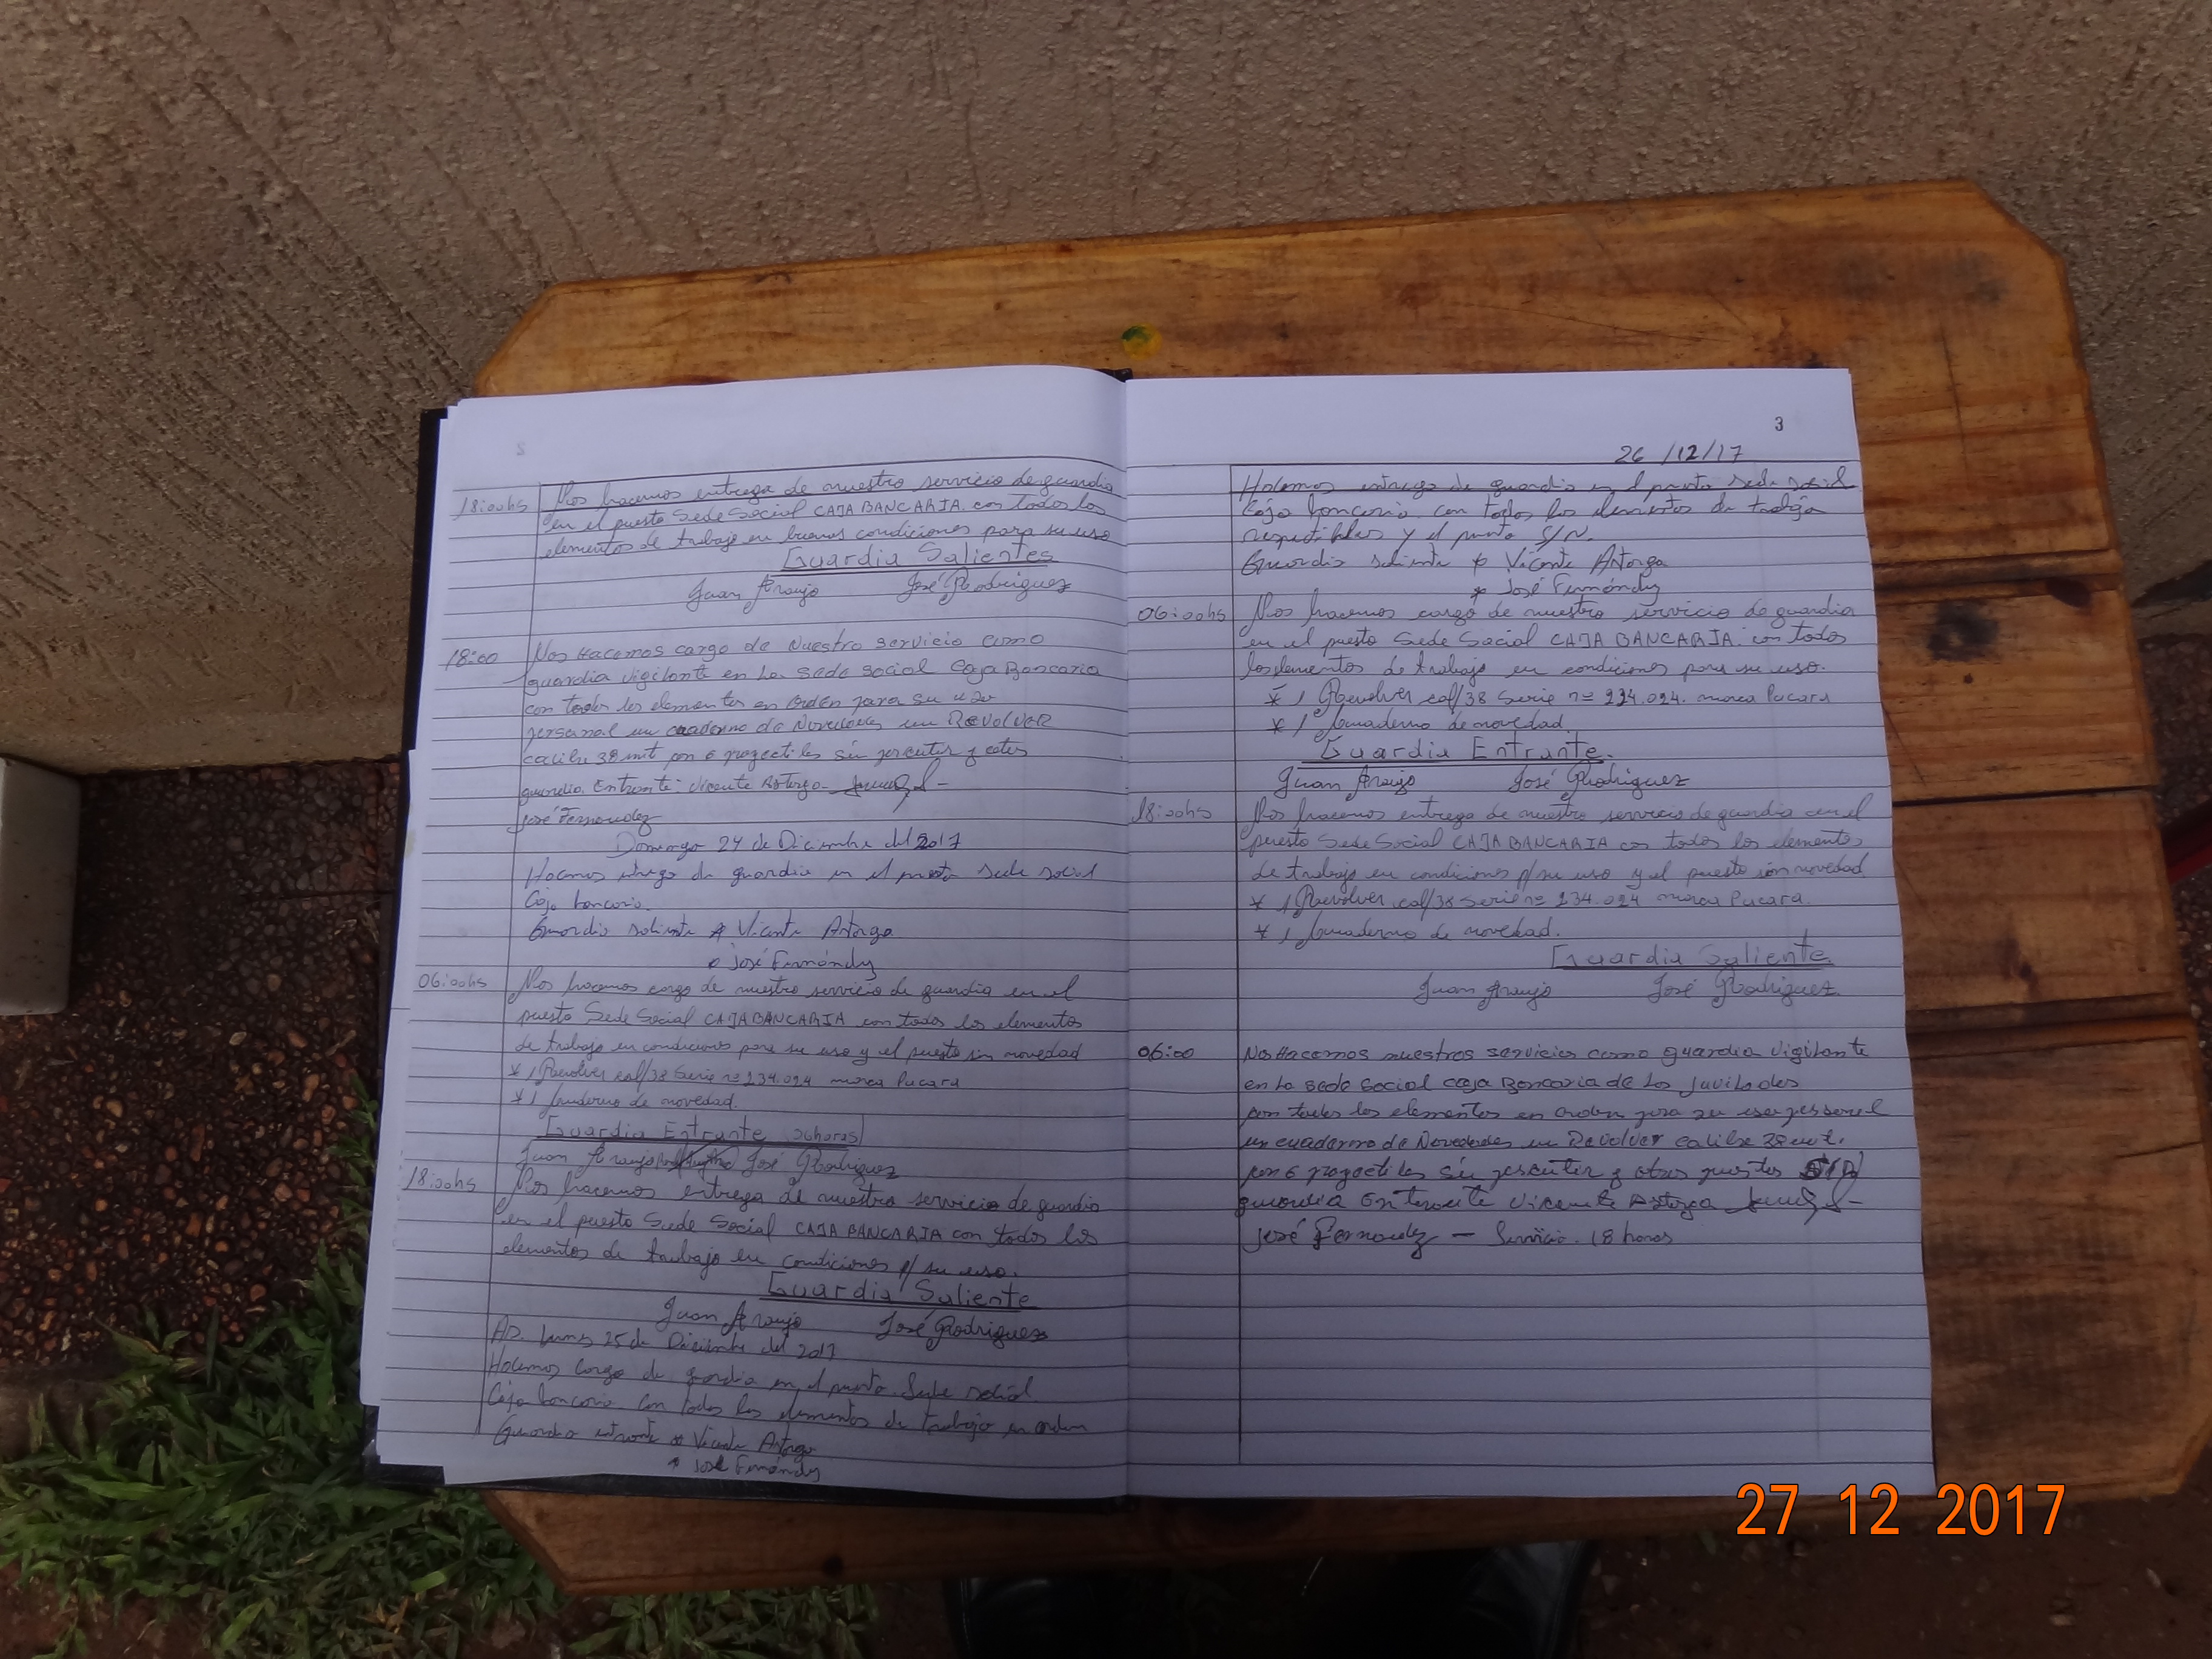 2
18:00hs Nos hacemos entrega de nuestro servicio de guardia
en el puesto Sede Social CAJA BANCARIA. con todos los
elementos de trabajo en buenas condiciones para su uso
Guardia Salientes
Juan Araujo José Rodriguez
18:00 Nos Hacemos cargo de Nuestro servicio como
guardia vigilante en La sede social Caja Bancaria
con todos los elementos en orden para su uso
personal un cuaderno de Novedades un REVOLVER
calibre 38 con 6 proyectiles sin percutir y
guardia Entrante: Vicente Astorga
José Fernandez
Domingo 24 de Diciembre del 2017
Hacemos entrega de guardia en el puesto sede social
Caja bancaria.
Guardia saliente * Vicente Astorga
* José Fernández
06:00hs Nos hacemos cargo de nuestro servicio de guardia en el
puesto Sede Social CAJA BANCARIA con todos los elementos
de trabajo en condiciones para su uso y el puesto sin novedad
* 1 Revolver cal/38 Serie nº 234.024 marca Pucara
* 1 Cuaderno de novedad.
Guardia Entrante
Juan Araujo José Rodriguez
18:00hs Nos hacemos entrega de nuestro servicio de guardia
en el puesto Sede Social CAJA BANCARIA con todos los
elementos de trabajo en condiciones p/ su uso.
Guardia Saliente
Juan Araujo José Rodriguez
Lunes 25 de Diciembre del 2017
Hacemos cargo de guardia en el puesto Sede social
Caja bancaria con todos los elementos de trabajo en orden
Guardia entrante * Vicente Astorga
* José Fernández
3
26/12/17
Hacemos entrega de guardia en el puesto sede social
Caja bancaria con todos los elementos de trabajo
y el puesto S/N.
Guardia saliente * Vicente Astorga
* José Fernández
06:00hs Nos hacemos cargo de nuestro servicio de guardia
en el puesto Sede Social CAJA BANCARIA. con todos
los elementos de trabajo en condiciones para su uso.
* 1 Revolver cal/38 Serie nº 234.024. marca Pucara
* 1 Cuaderno de novedad
Guardia Entrante.
Juan Araujo José Rodriguez
18:00hs Nos hacemos entrega de nuestro servicio de guardia en el
puesto Sede Social CAJA BANCARIA con todos los elementos
de trabajo en condiciones p/ su uso y el puesto sin novedad
* 1 Revolver cal/38 Serie nº 234.024 marca Pucara.
* 1 Cuaderno de novedad.
Guardia Saliente
Juan Araujo José Rodriguez
06:00 Nos Hacemos nuestros servicios como guardia vigilante
en La sede social caja Bancaria de Los Juvilados
con todos los elementos en orden para su uso personal
un cuaderno de Novedades un Revolver calibre 38
con 6 proyectiles sin percutir y otros puestos
guardia Entrante Vicente Astorga
José Fernandez — Servicio. 18 horas
27 12 2017